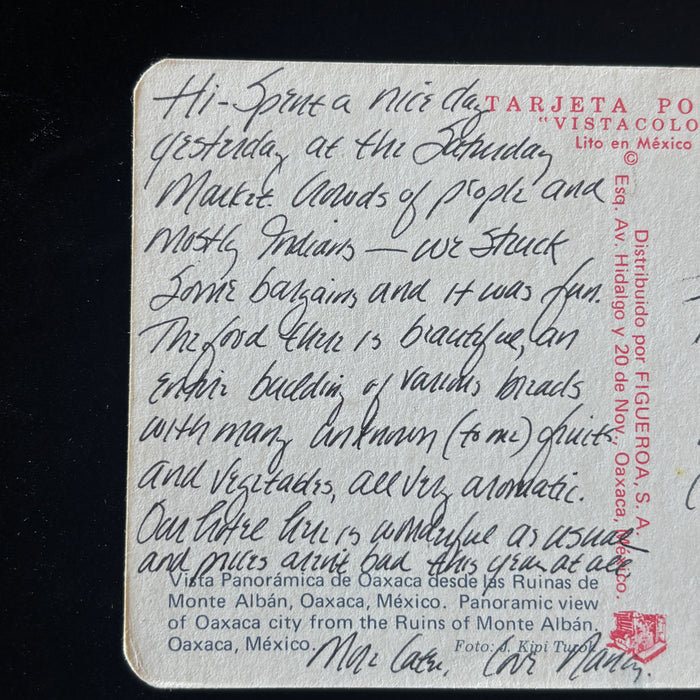 Hi - Spent a nice day
yesterday at the Saturday
Market. Crowds of people and
mostly Indians — we struck
some bargains and it was fun.
The food there is beautiful, an
entire building of various breads
with many unknown (to me) fruits
and vegetables, all very aromatic.
Our hotel here is wonderful as usual
and prices aren't bad this year at all.
More later, Love Nancy.
Vista Panorámica de Oaxaca desde las Ruinas de
Monte Albán, Oaxaca, México. Panoramic view
of Oaxaca city from the Ruins of Monte Albán.
Oaxaca, México.
Foto: J. Kipi Turok
TARJETA PO
"VISTACOLO
Lito en México
©
Distribuido por FIGUEROA, S. A.
Esq. Av. Hidalgo y 20 de Nov., Oaxaca, México.